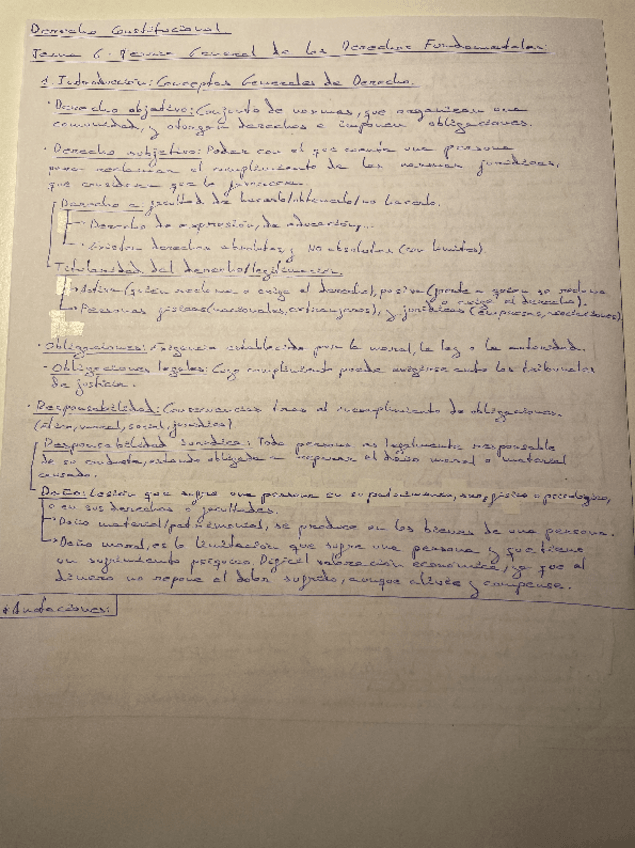 Derecho Constitucional
Tema 6. General de los Derechos Fundamentales
1. Introducción: Conceptos Generales de Derecho.
· Derecho objetivo: Conjunto de normas, que organizan una
comunidad, y otorgan derechos e imponen obligaciones.
· Derecho subjetivo: Poder con el que cuenta una persona
para reclamar el cumplimiento de las normas jurídicas,
que considera que le favorecen.
Derecho = facultad de hacerlo/obtenerlo/no hacerlo.
Derecho de expresión, de educación,...
Existen derechos absolutos y no absolutos (con límites).
Titularidad del derecho/legitimación.
Activa (quién reclama o exige el derecho), pasiva (frente a quien se reclama
o exige el derecho).
Personas físicas (nacionales, extranjeros), y jurídicas (empresas, asociaciones)
· Obligaciones: Exigencia establecida por la moral, la ley o la autoridad.
· Obligaciones legales: Cuyo cumplimiento puede exigirse ante los tribunales
de justicia.
· Responsabilidad: Consecuencias tras el incumplimiento de obligaciones.
(ética, moral, social, jurídica)
Responsabilidad jurídica: Toda persona es legalmente responsable
de su conducta, estando obligada a reparar el daño moral o material
causado.
Daño: Lesión que sufre una persona en su patrimonio, ser físico o psicológico,
o en sus derechos o facultades.
Daño material/patrimonial, se produce en los bienes de una persona.
Daño moral, es la limitación que sufre una persona y que tiene
un sufrimiento psíquico. Difícil valoración económica, ya que el
dinero no repone el dolor sufrido, aunque alivie y compense.
*Anotaciones: